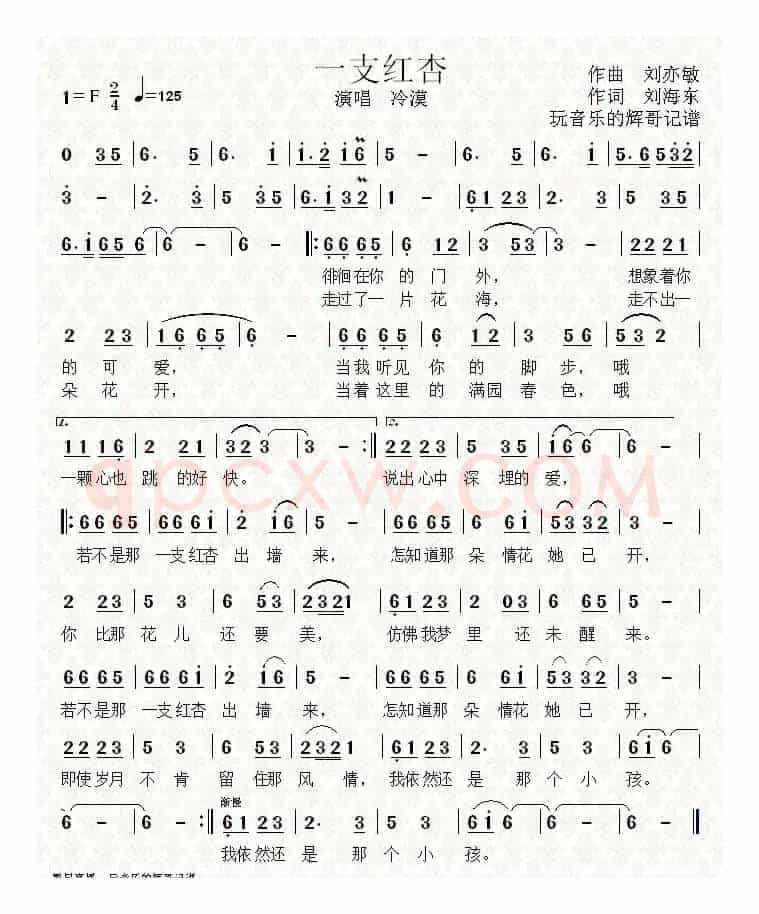 一支红杏
作曲 刘亦敏
1=F 2/4 ♩=125
演唱 冷漠
作词 刘海东
玩音乐的辉哥记谱
0 35 | 6. 5 | 6. i | i.2 i6 | 5 - | 6. 5 | 6. i | 5.6 532 |
3 - | 2. 3 | 5 35 | 6.i 32 | 1 - | 6123 | 2. 3 | 5 35 |
6.i65 6 | 6 - | 6 - ‖: 66 65 | 6 12 | 3 53 | 3 - | 22 21 |
徘徊在你 的 门 外， 想象着你
走过了一 片 花 海， 走不出一
2 23 | 16 65 | 6 - | 66 65 | 6 12 | 3 56 | 53 2 |
的 可 爱， 当我听见 你 的 脚 步，哦
朵 花 开， 当着这里 的 满园 春 色，哦
1. 2.
11 16 | 2 21 | 323 | 3 - :‖ 22 23 | 5 35 | 16 6 | 6 - |
一颗心也 跳 的好 快。 说出心中 深 埋的 爱，
qpcxw.COM
‖: 66 65 | 66 6i | 2 i6 | 5 - | 66 65 | 6 6i | 53 32 | 3 - |
若不是那 一支红杏 出 墙 来， 怎知道那 朵 情花 她 已 开，
2 23 | 5 3 | 6 53 | 2321 | 6123 | 2 03 | 6 65 | 5 - |
你 比那 花 儿 还 要 美， 仿佛我梦 里 还 未 醒 来。
66 65 | 66 6i | 2 i6 | 5 - | 66 65 | 6 6i | 53 32 | 3 - |
若不是那 一支红杏 出 墙 来， 怎知道那 朵 情花 她 已 开，
22 23 | 5 3 | 6 53 | 2321 | 6123 | 2. 3 | 5 35 | 6i6 |
即使岁月 不 肯 留 住那 风 情，我依然还 是 那 个 小 孩。
渐慢
6 - | 6 - :‖ 6123 | 2. 3 | 5 35 | 6i6 | 6 - | 6 - ‖
我依然还 是 那 个 小 孩。